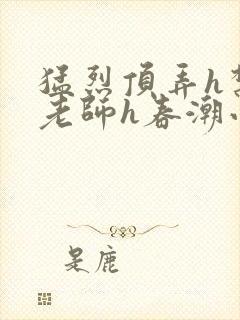 猛烈頂弄h
老師h春潮
是鹿